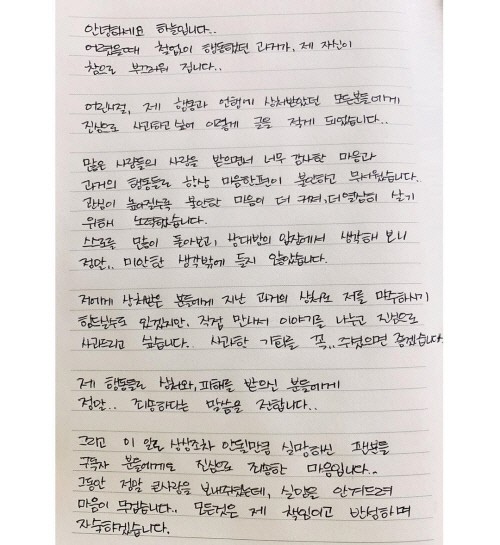 안녕하세요 하늘입니다..
어렸을때 철없이 행동했던 과거가, 제 자신이
참으로 부끄러워 집니다..
어린시절, 제 행동과 언행에 상처받았던 모든분들에게
진심으로 사과하고 싶어 이렇게 글을 적게 되었습니다..
많은 사람들의 사랑을 받으면서 너무 감사한 마음과
과거의 행동들로 항상 마음한편이 불안하고 무서웠습니다..
관심이 높아질수록 불안한 마음이 더 커져, 더열심히 살기
위해 노력했습니다.
스스로를 많이 돌아보고, 상대방의 입장에서 생각해 보니
정말.. 미안한 생각밖에 들지 않았습니다.
저에게 상처받은 분들에게 지난 과거의 상처로 저를 마주하시기
힘드실수도 있겠지만, 직접 만나서 이야기를 나누고 진심으로
사과드리고 싶습니다. 사과할 기회를 꼭.. 주셨으면 좋겠습니다
제 행동들로 상처와, 피해를 받으신 분들에게
정말.. 죄송하다는 말씀을 전합니다..
그리고 이 일로 상상조차 안될만큼 실망하신 팬분들
구독자 분들에게도 진심으로 죄송한 마음입니다..
그동안 정말 큰사랑을 보내주셨는데, 실망을 안겨드려
마음이 무겁습니다.. 모든것은 제 책임이고 반성하며
자숙하겠습니다.